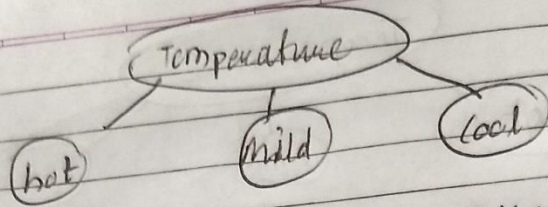 Temperature
hot mild cool